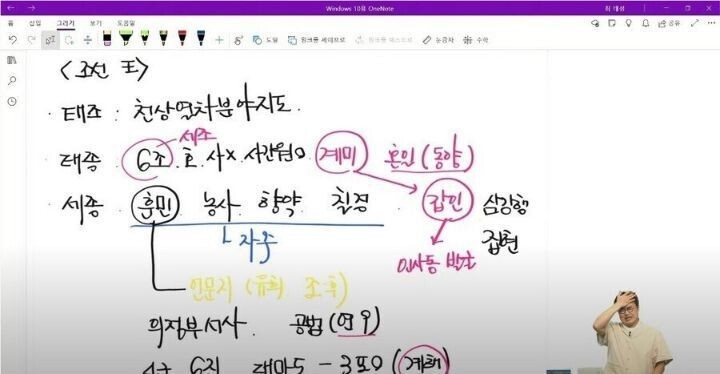 Windows 10용 OneNote
최 태성
홈 삽입 그리기 보기 도움말
도형 잉크를 셰이프로 잉크를 텍스트로 눈금자 수학
공유
<조선 王>
· 태조 : 천상열차분야지도
세조
· 태종 6조 호 사× 사간원O 계미 혼일 (동양)
· 세종 훈민 농사 향약 칠정 갑인 삼강행
집현
자주 인사동 발굴
언문지 (유희 조후)
의정부서사 공법 (연 9)
6진 대마도 - 3포O (계해)